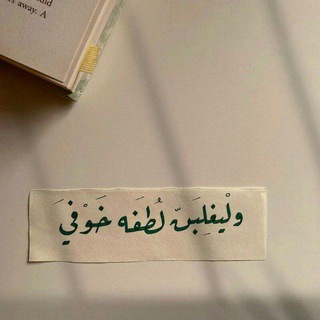 s away. A
ولْيغلِبَنّ لُطفَه خَوْفيَ